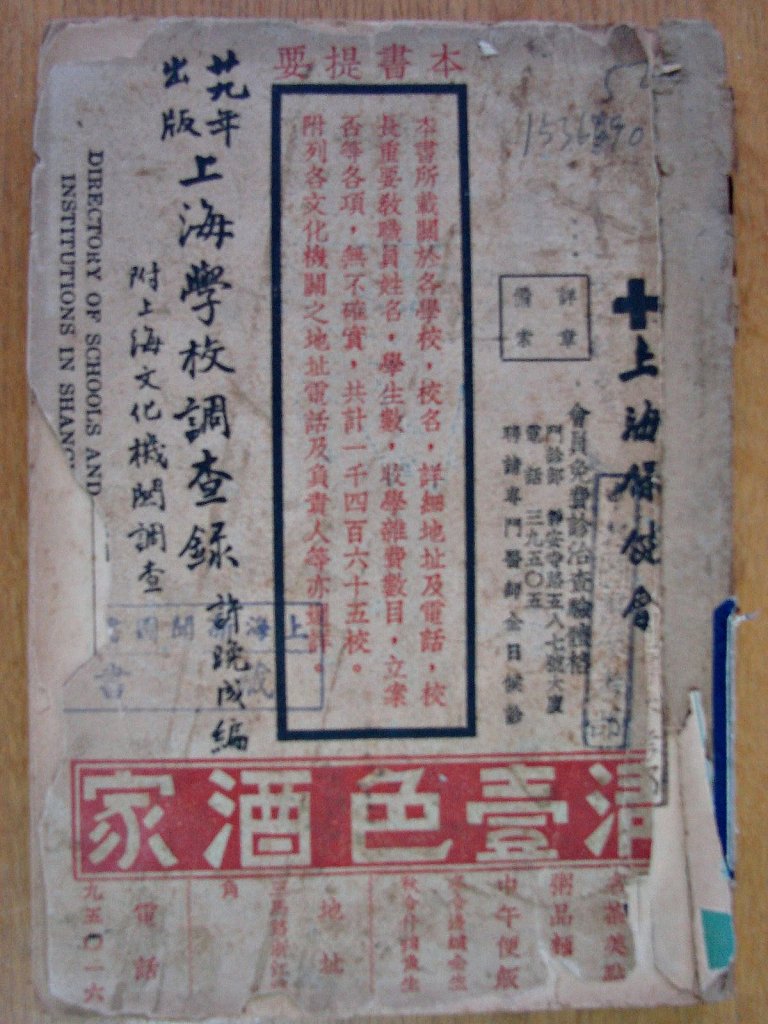 本書提要
本書所載關於各學校，校名，詳細地址及電話，校
長重要教職員姓名，學生數，收學雜費數目，立案
否等各項，無不確實，共計一千四百六十五校。
附列各文化機關之地址電話及負責人等亦
上海保健會
會員免費診治查驗體格
門診部 靜安寺路五八七號大廈
電話 三九五〇五
聘請專門醫師全日候診
備案
1536
廿九年
出版
上海學校調查錄
許晚成編
附上海文化機關調查
DIRECTORY OF SCHOOLS AND
INSTITUTIONS IN SHANG
上海
書
清壹色酒家
美點
粥品麵
中午便飯
地址
角
電話
九五〇一六